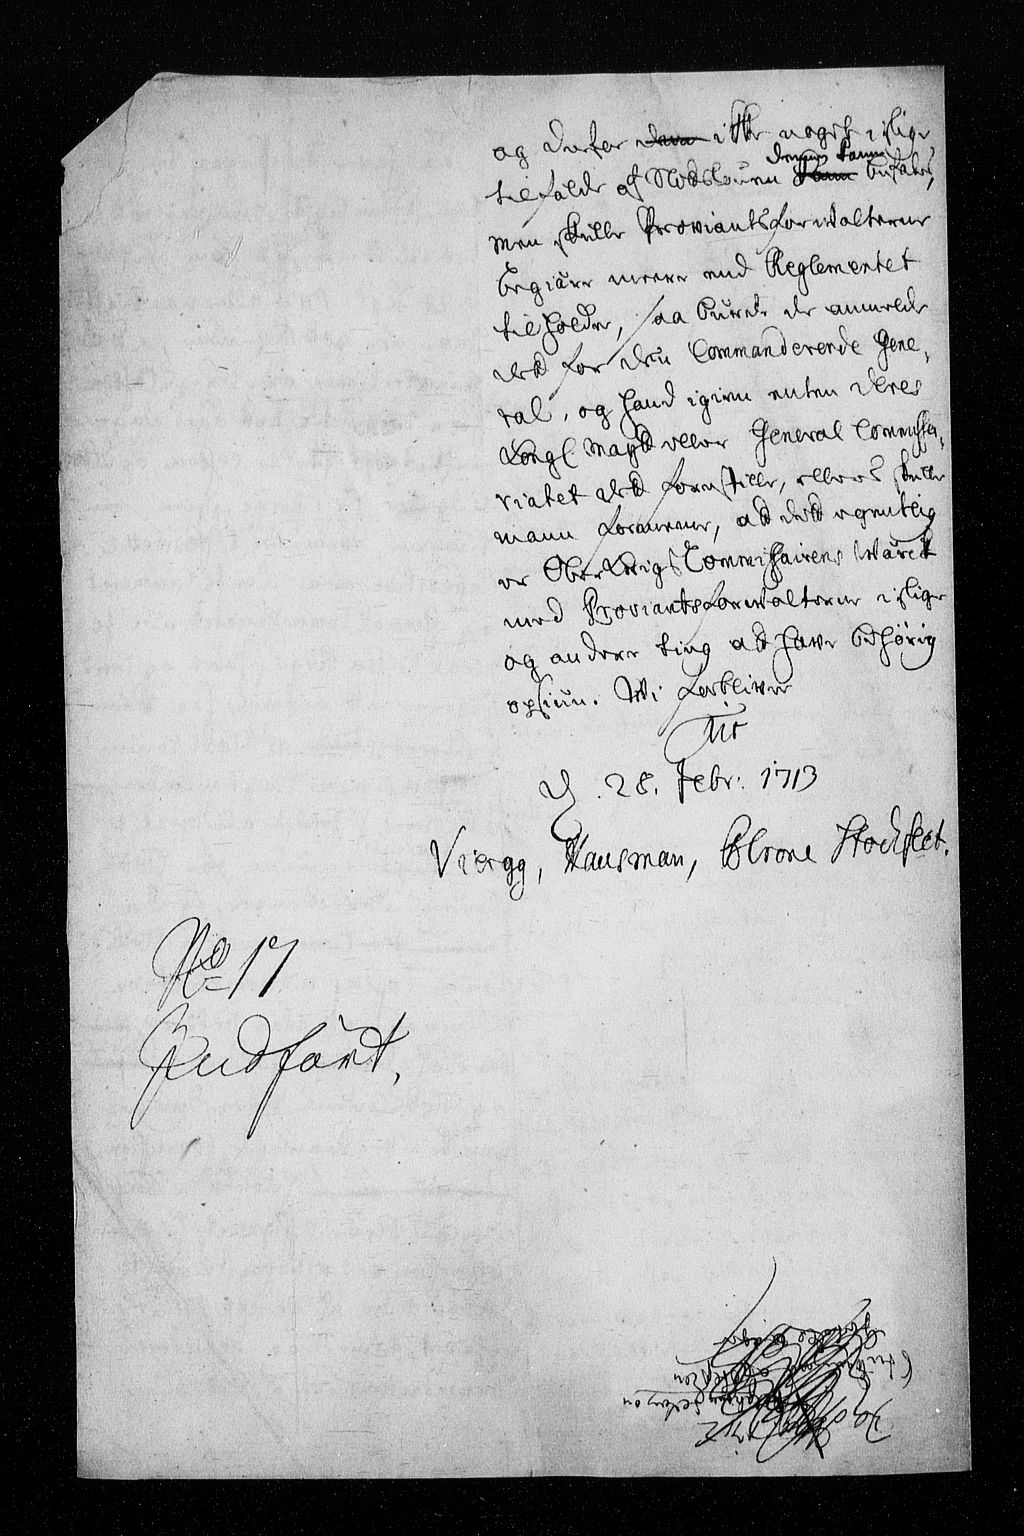 og derfor ~~dem~~ icke nogit i slige
tilfælde af Slodslouen ~~kand~~ dennem kand befales,
men skulle Proviantsforwalterne
begiære meere end Reglementet
tilholder, saa burde de anmelde
ded for den Commanderende Gene,
ral, og hand igien enten deres
Kongl Maÿtt eller General Commissa,
riatet ded forestille, ellers skulle
mann formeene, at ded egentlig
er Ober Krigs Commissairens Wærck
med Proviantsforwalterne i slige
og andere ting at have behörig
opsiun. Wi forblifver
Tit
d. 28. Febr: 1713
Vieregg, Hausman, C Krone Stockflet.
No 17
Indfört.